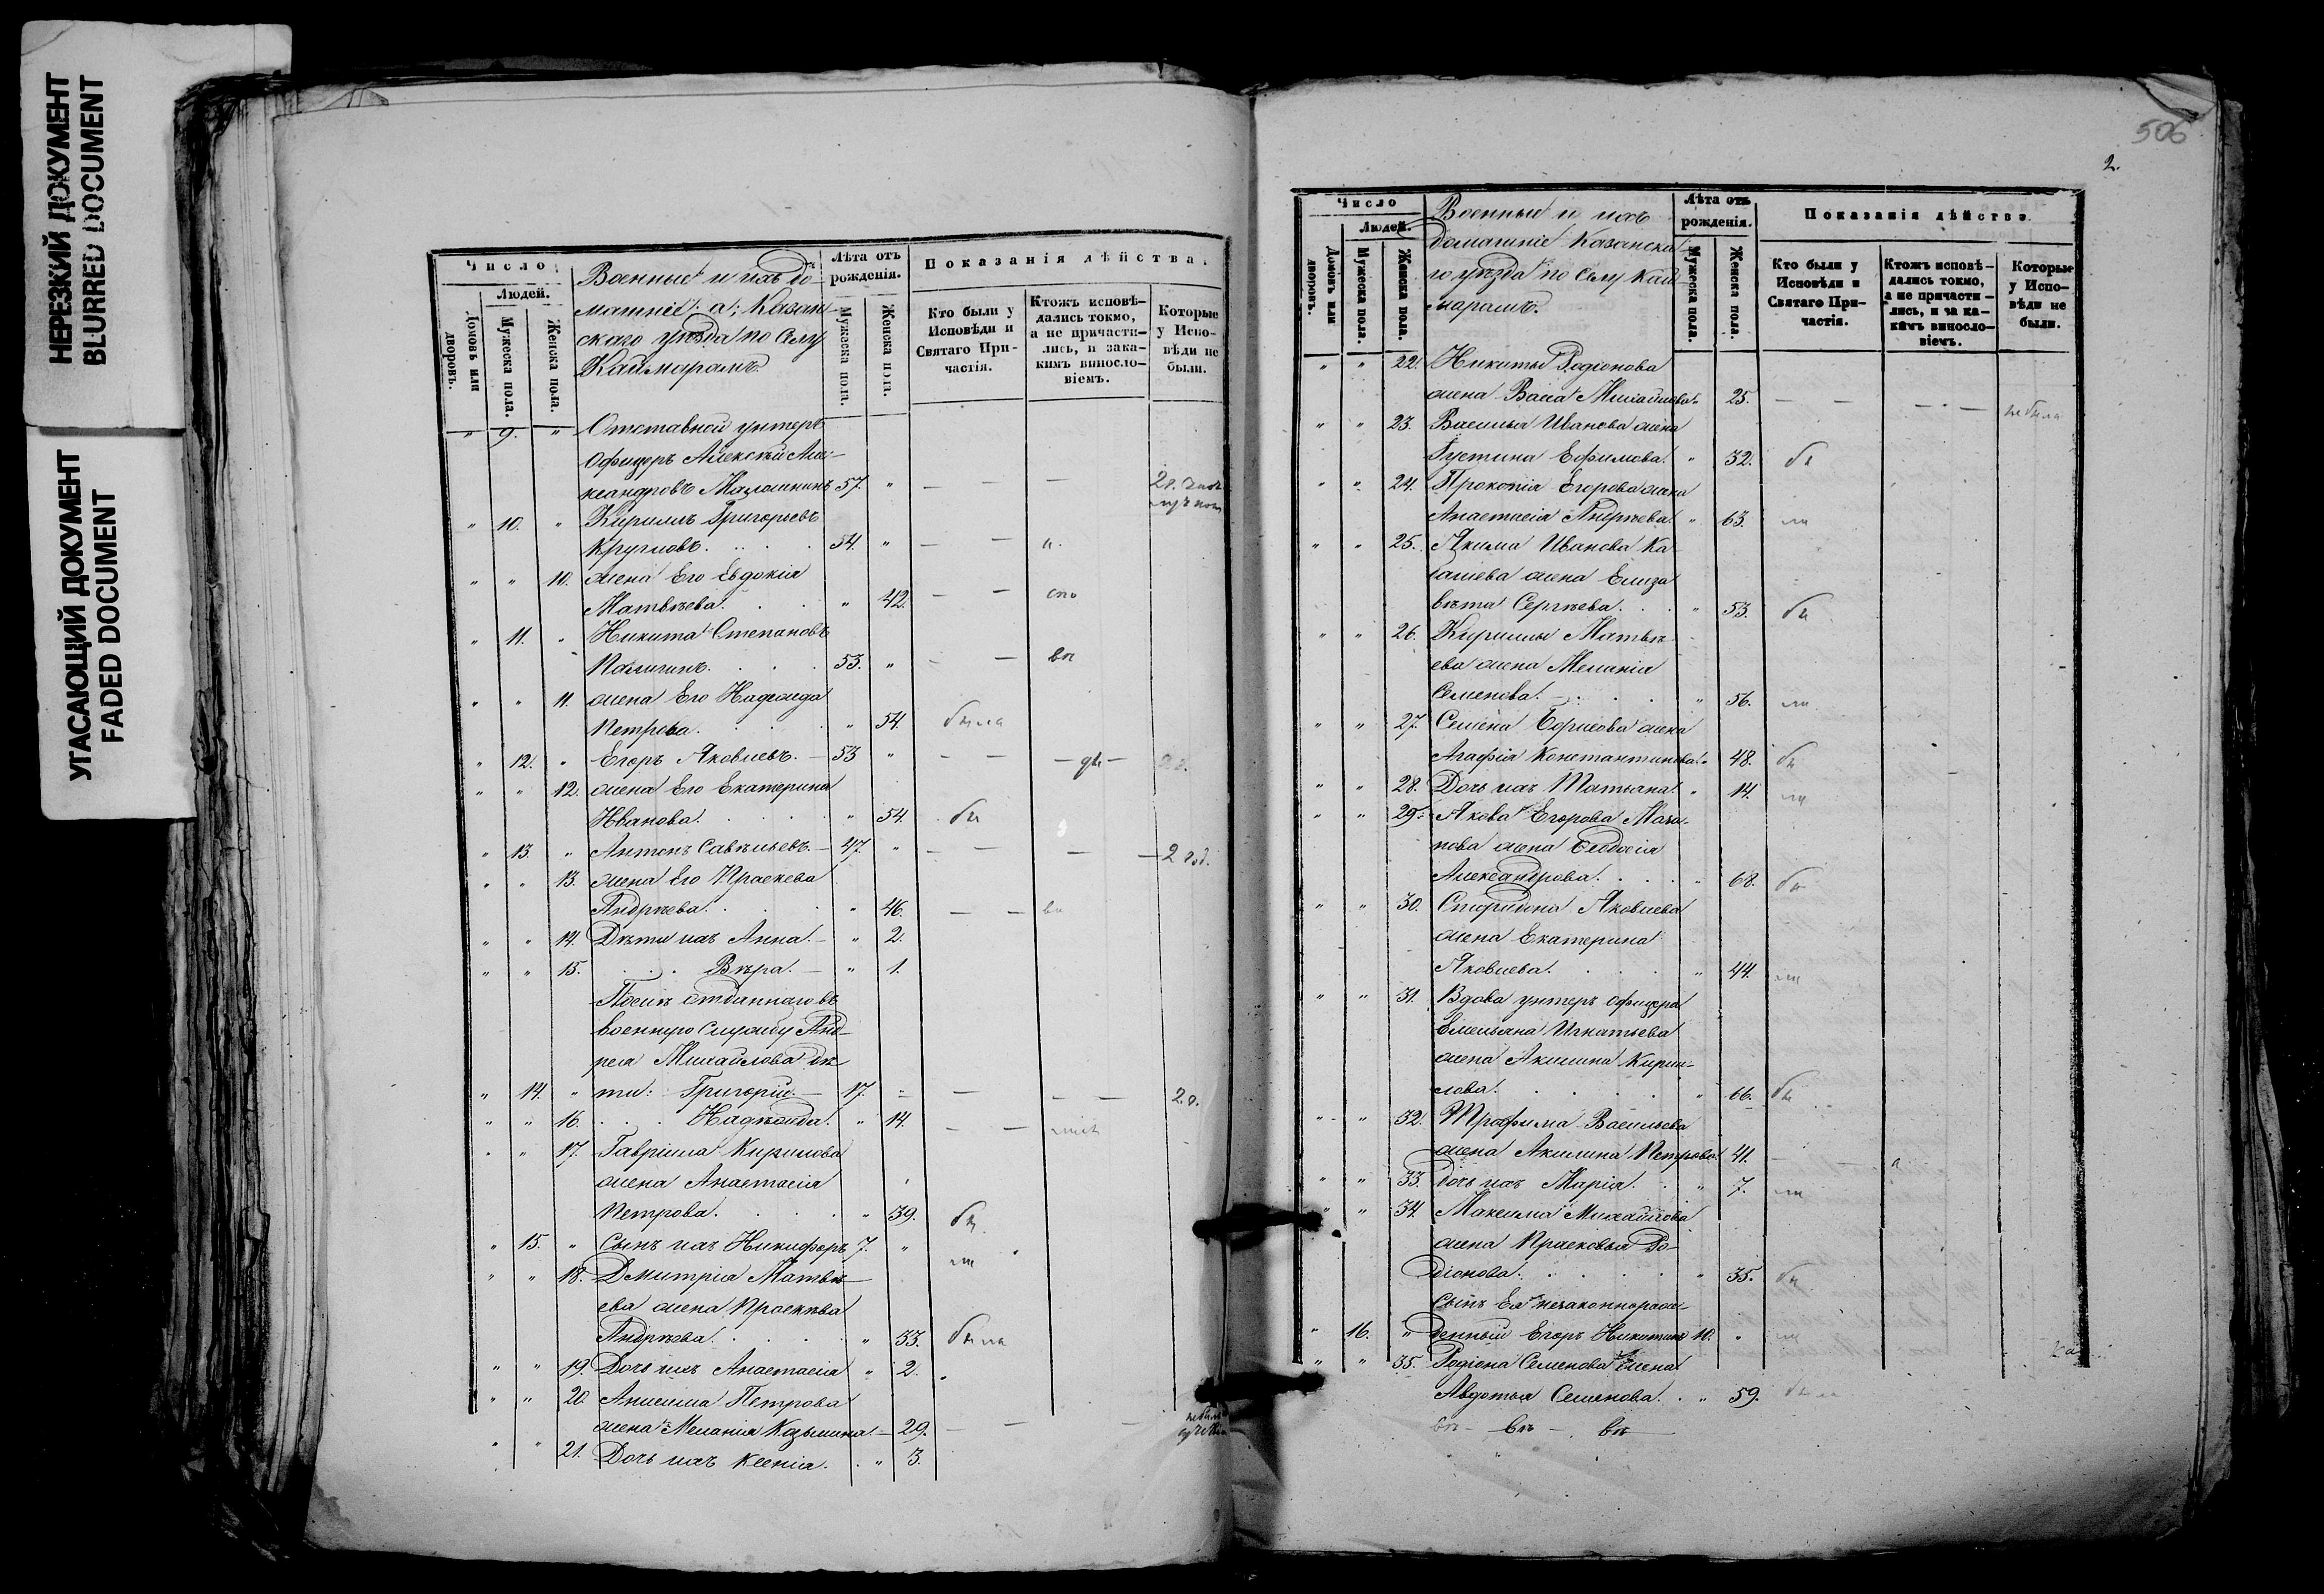 НЕРЕЗКИЙ ДОКУМЕНТ
BLURRED DOCUMENT
УГАСАЮЩИЙ ДОКУМЕНТ
FADED DOCUMENT
Число
Людей.
Домовъ или дворовъ.
Мужеска пола.
Женска пола.
Военные и ихъ до-
машніе: а; Казан-
скаго уѣзда по селу
Каймарамъ.
Лѣта отъ рожденія.
Мужеска пола.
Женска пола.
Показанія дѣйства.
Кто были у Исповѣди и Святаго При-
частія.
Ктожъ исповѣ-
дались токмо,
а не причасти-
лись, и зака-
кимъ виносло-
віемъ.
Которые
у Испо-
вѣди не
были.
" 9. " Отставной унтеръ
Офицеръ Алексѣй Але-
ксандровъ 57. " — — —
" 10. " Кириллъ Григорьевъ
Кругловъ. 54. " — —
" " 10. жена Его Евдокія
Матвѣева. " 42. — —
" 11. " Никита Степановъ
53. " — —
" " 11. жена Его Надежда
Петрова. " 54. была
" 12. " Егоръ Яковлевъ. — 53 " — —
" " 12. жена Его Екатерина
Иванова. " 54. бы
" 13. " Антонъ Савельевъ. — 47. " — — — — 2 год.
" " 13. жена Его Праскева
Андрѣева. " 46. — —
" " 14. Дѣти ихъ Анна. — " 2.
" " 15. Вѣра. — " 1.
Послѣ отданнаго въ
военную службу Анд-
рея Михайлова дѣ-
" 14. " ти: Григорій. — 17. — — — 2. г.
" " 16. Надежда. " 14. — —
" " 17. Гавріила Кирилова
жена Анастасія
Петрова. " 39. бы
" 15. " Сынъ ихъ Никифоръ 7. " ли
" " 18. Дмитрія Матвѣ-
ева жена Праскева
Андрѣева. " 33. была
" " 19. Дочь ихъ Анастасія " 2.
" " 20. Анисима Петрова
жена Меланія Козьмина. — 29. — — —
" " 21. Дочь ихъ Ксенія. " 3.
506
2.
Число
Людей.
Домовъ или дворовъ.
Мужеска пола.
Женска пола.
Военные и ихъ
домашніе Казанска-
го уѣзда по селу Кай-
марамъ.
Лѣта отъ рожденія.
Мужеска пола.
Женска пола.
Показанія дѣйства.
Кто были у
Исповѣди и
Святаго При-
частія.
Ктожъ исповѣ-
дались токмо,
а не причасти-
лись, и за ка-
кимъ винословіемъ.
Которые
у Испо-
вѣди не
были.
" " 22. Никиты Родіонова
жена Васса Михайлова. 25. — — — — не была
" " 23. Василья Иванова жена
Устина Ефимова. " 32. бы
" " 24. Прокопія Егорова жена
Анастасія Андрѣева. " 63. ли
" " 25. Якима Иванова Ка-
жена Елиза-
вѣта Сергѣева. " 53. бы
" " 26. Кириллы Матвѣ-
ева жена Меланія
Семенова. " 56. ли
" " 27. Семена Борисова жена
Агафія Константинова. " 48. бы
" " 28. Дочь ихъ Татьана. " 14. ли
" " 29. Якова Егорова
жена Ѳедосія
Александрова. " 68. бы
" " 30. Спиридона Яковлева
жена Екатерина
Яковлева. " 44. ли
" " 31. Вдова унтеръ офицера
Емельяна Игнатьева
жена Акилина Кири-
лова. " 66. бы
" " 32. Трофима Васильева
жена Акилина Петрова. 41.
" " 33. Дочь ихъ Марія. " 7. ли
" " 34. Максима Михайлова
жена Прасковья Ро-
діонова. " 35. бы
Сынъ Ея незаконнорож-
" 16. " денный Егоръ Никитинъ 10. " ли
" " 35. Родіона Семенова жена
Авдотья Семенова. " 59. была